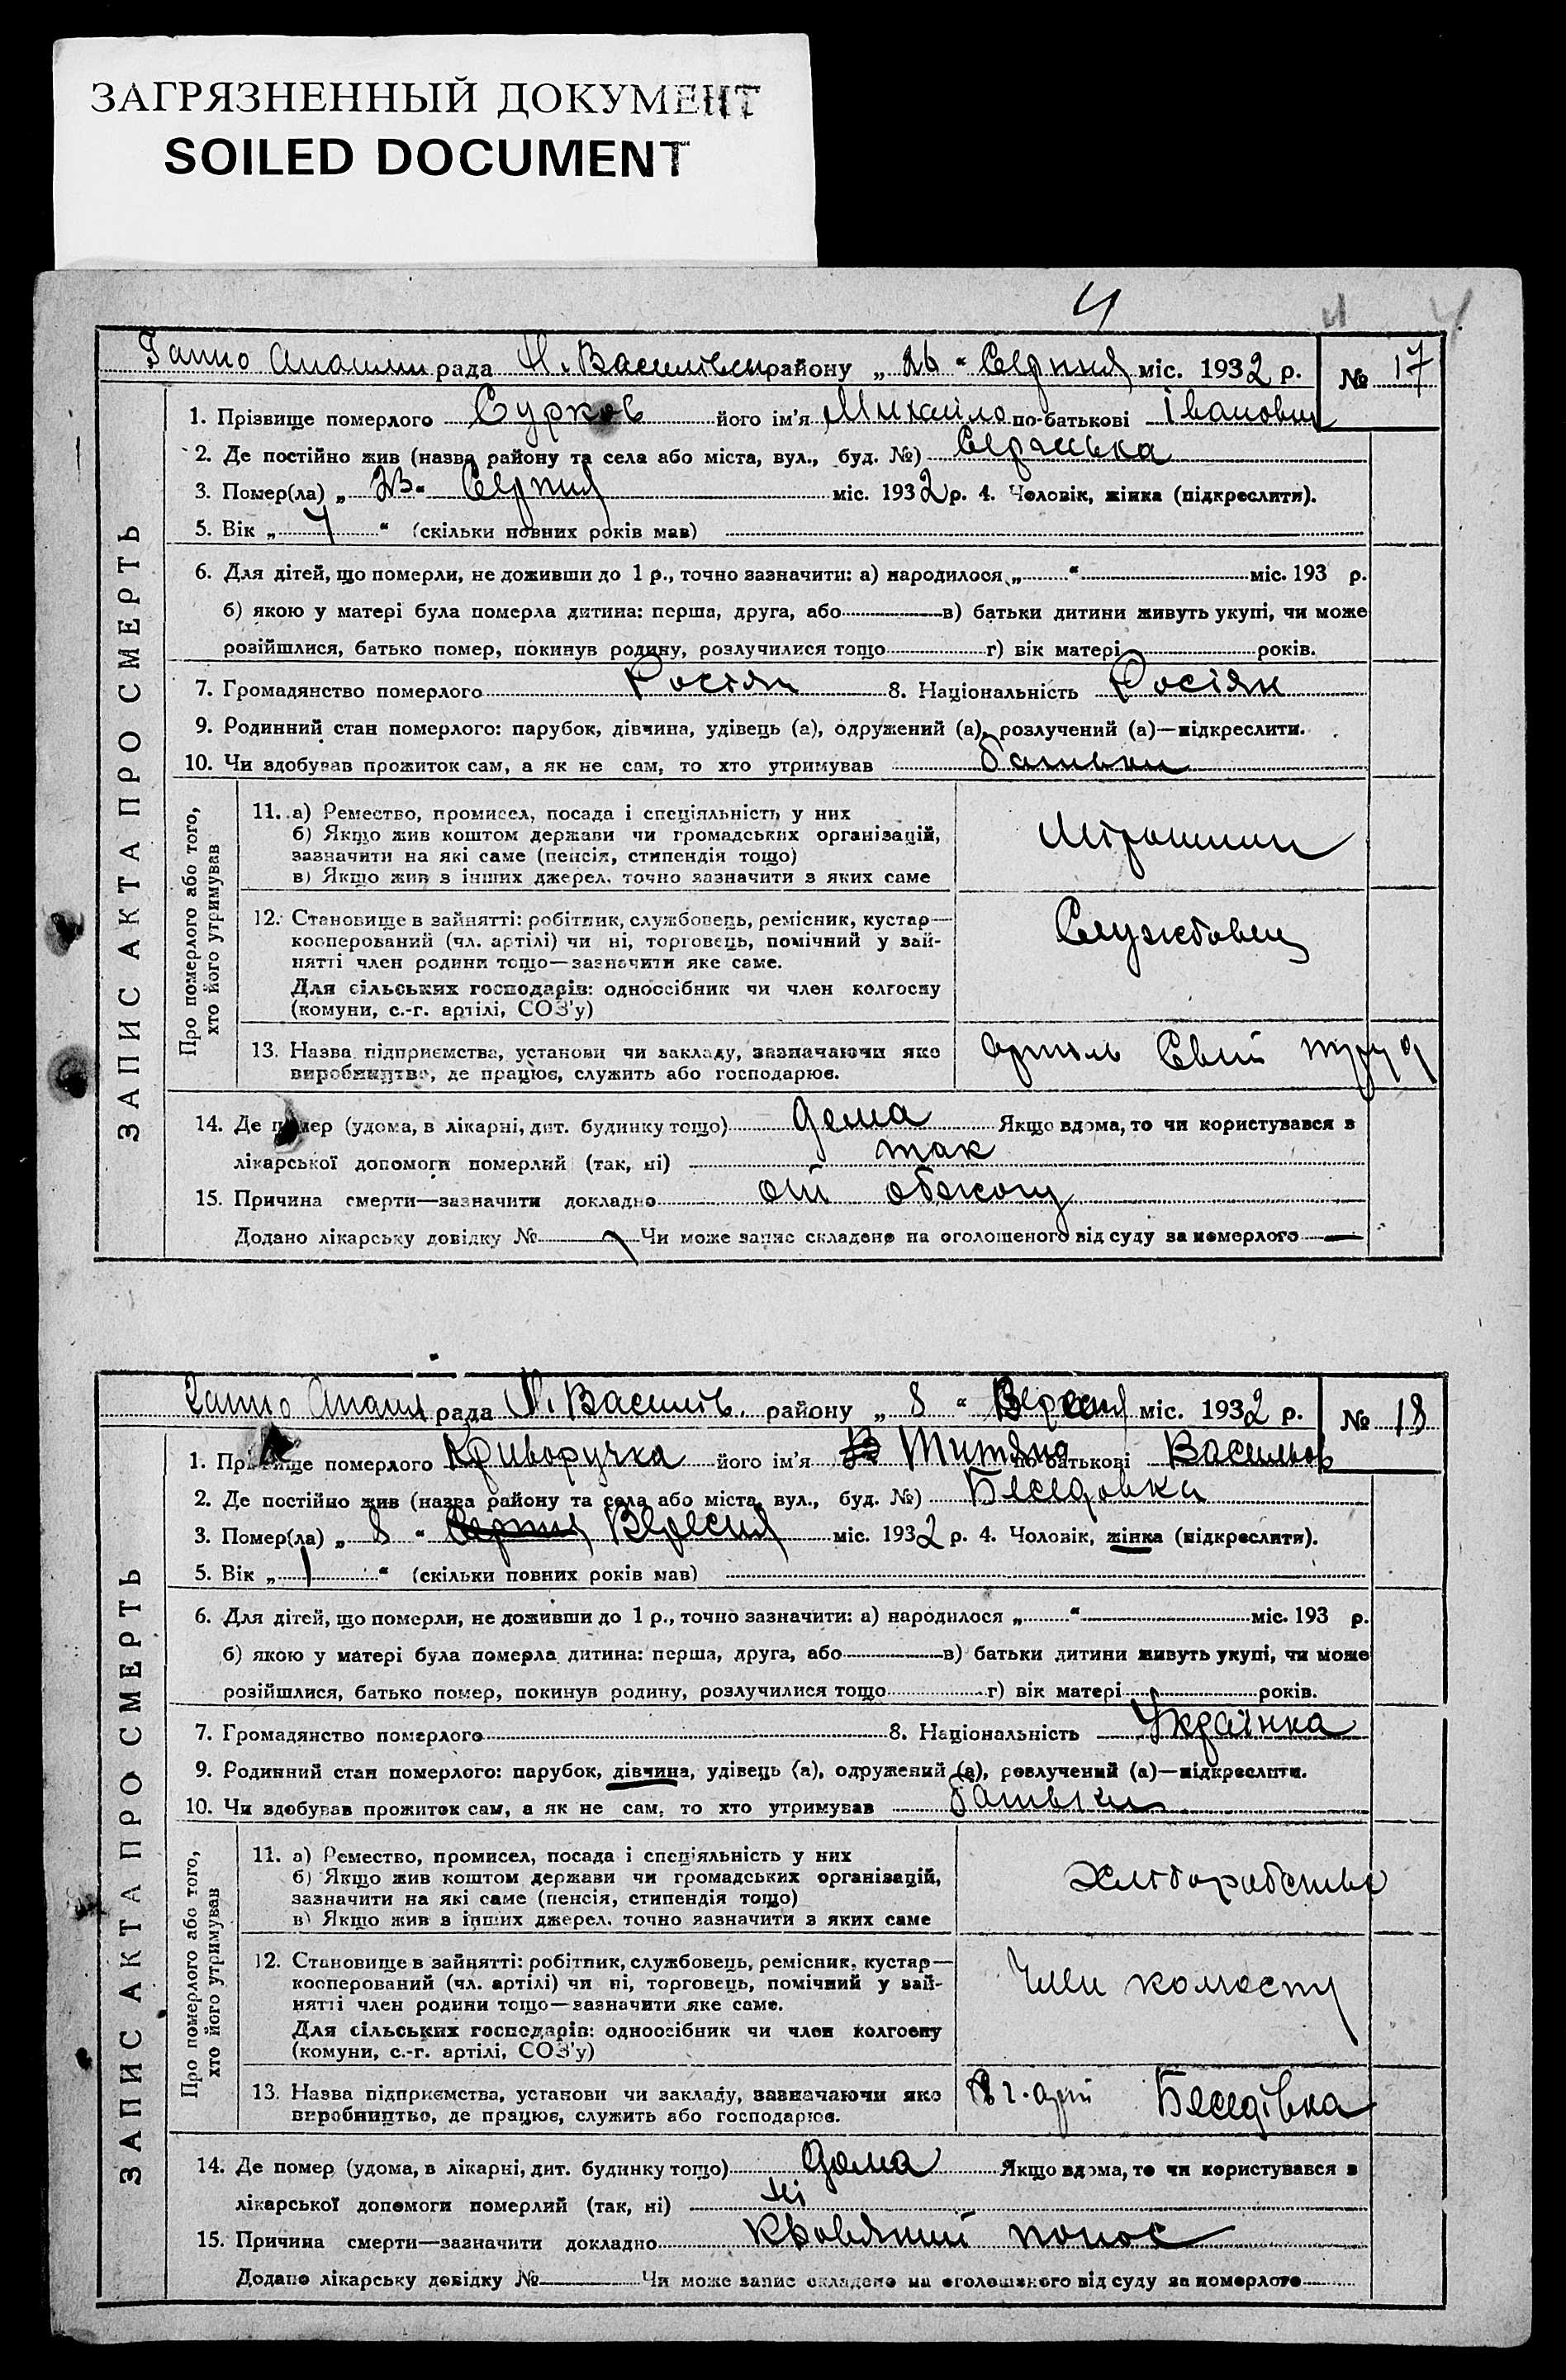 ЗАГРЯЗНЕННЫЙ ДОКУМЕНТ
SOILED DOCUMENT
4
рада Н. Василівськ району „ 26 " Серпня міс. 1932 р. № 17
1. Прізвище померлого Сурков його ім'я Михайло по-батькові Іванович
2. Де постійно жив (назва району та села або міста, вул., буд. №)
3. Помер(ла) „ 23 " Серпня міс. 1932 р. 4. Чоловік, жінка (підкреслити).
5. Вік „ 4 " (скільки повних років мав)
6. Для дітей, що померли, не доживши до 1 р., точно зазначити: а) народилося „ " міс. 193 р.
б) якою у матері була померла дитина: перша, друга, або в) батьки дитини живуть укупі, чи може
розійшлися, батько помер, покинув родину, розлучилися тощо г) вік матері років.
7. Громадянство померлого Росіян 8. Національність Росіян
9. Родинний стан померлого: парубок, дівчина, удівець (а), одружений (а), розлучений (а)—підкреслити.
10. Чи здобував прожиток сам, а як не сам, то хто утримував батьки
ЗАПИС АКТА ПРО СМЕРТЬ
Про померлого або того,
хто його утримував
11. а) Ремество, промисел, посада і спеціяльність у них
б) Якщо жив коштом держави чи громадських організацій,
зазначити на які саме (пенсія, стипендія тощо)
в) Якщо жив з інших джерел, точно зазначити з яких саме
Мірошник
12. Становище в зайнятті: робітник, службовець, ремісник, кустар—
кооперований (чл. артілі) чи ні, торговець, помічний у зай-
нятті член родини тощо—зазначити яке саме.
Для сільських господарів: одноосібник чи член колгоспу
(комуни, с.-г. артілі, СОЗ'у)
Службовец
13. Назва підприємства, установи чи закладу, зазначаючи яке
виробництво, де працює, служить або господарює.
артель Свій труд
14. Де помер (удома, в лікарні, дит. будинку тощо) дома Якщо вдома, то чи користувався з
лікарської допомоги померлий (так, ні) так
15. Причина смерти—зазначити докладно от обжогу
Додано лікарську довідку № Чи може запис складено на оголошеного від суду за померлого —
рада Н. Василів. району „ 8 " Вересня міс. 1932 р. № 18
1. Прізвище померлого Криворучка його ім'я Титяна по-батькові Васильов
2. Де постійно жив (назва району та села або міста, вул., буд. №) Беседовка
3. Помер(ла) „ 8 " Серпня Вересня міс. 1932 р. 4. Чоловік, жінка (підкреслити).
5. Вік „ 1 " (скільки повних років мав)
6. Для дітей, що померли, не доживши до 1 р., точно зазначити: а) народилося „ " міс. 193 р.
б) якою у матері була померла дитина: перша, друга, або в) батьки дитини живуть укупі, чи може
розійшлися, батько помер, покинув родину, розлучилися тощо г) вік матері років.
7. Громадянство померлого 8. Національність Українка
9. Родинний стан померлого: парубок, дівчина, удівець (а), одружений (а), розлучений (а)—підкреслити.
10. Чи здобував прожиток сам, а як не сам, то хто утримував батьки
ЗАПИС АКТА ПРО СМЕРТЬ
Про померлого або того,
хто його утримував
11. а) Ремество, промисел, посада і спеціяльність у них
б) Якщо жив коштом держави чи громадських організацій,
зазначити на які саме (пенсія, стипендія тощо)
в) Якщо жив з інших джерел, точно зазначити з яких саме
Хліборобство
12. Становище в зайнятті: робітник, службовець, ремісник, кустар—
кооперований (чл. артілі) чи ні, торговець, помічний у зай-
нятті член родини тощо—зазначити яке саме.
Для сільських господарів: одноосібник чи член колгоспу
(комуни, с.-г. артілі, СОЗ'у)
Член колгоспу
13. Назва підприємства, установи чи закладу, зазначаючи яке
виробництво, де працює, служить або господарює.
арт Беседівка
14. Де помер (удома, в лікарні, дит. будинку тощо) Дома Якщо вдома, то чи користувався з
лікарської допомоги померлий (так, ні) Ні
15. Причина смерти—зазначити докладно Кровяний понос
Додано лікарську довідку № Чи може запис складено на оголошеного від суду за померлого